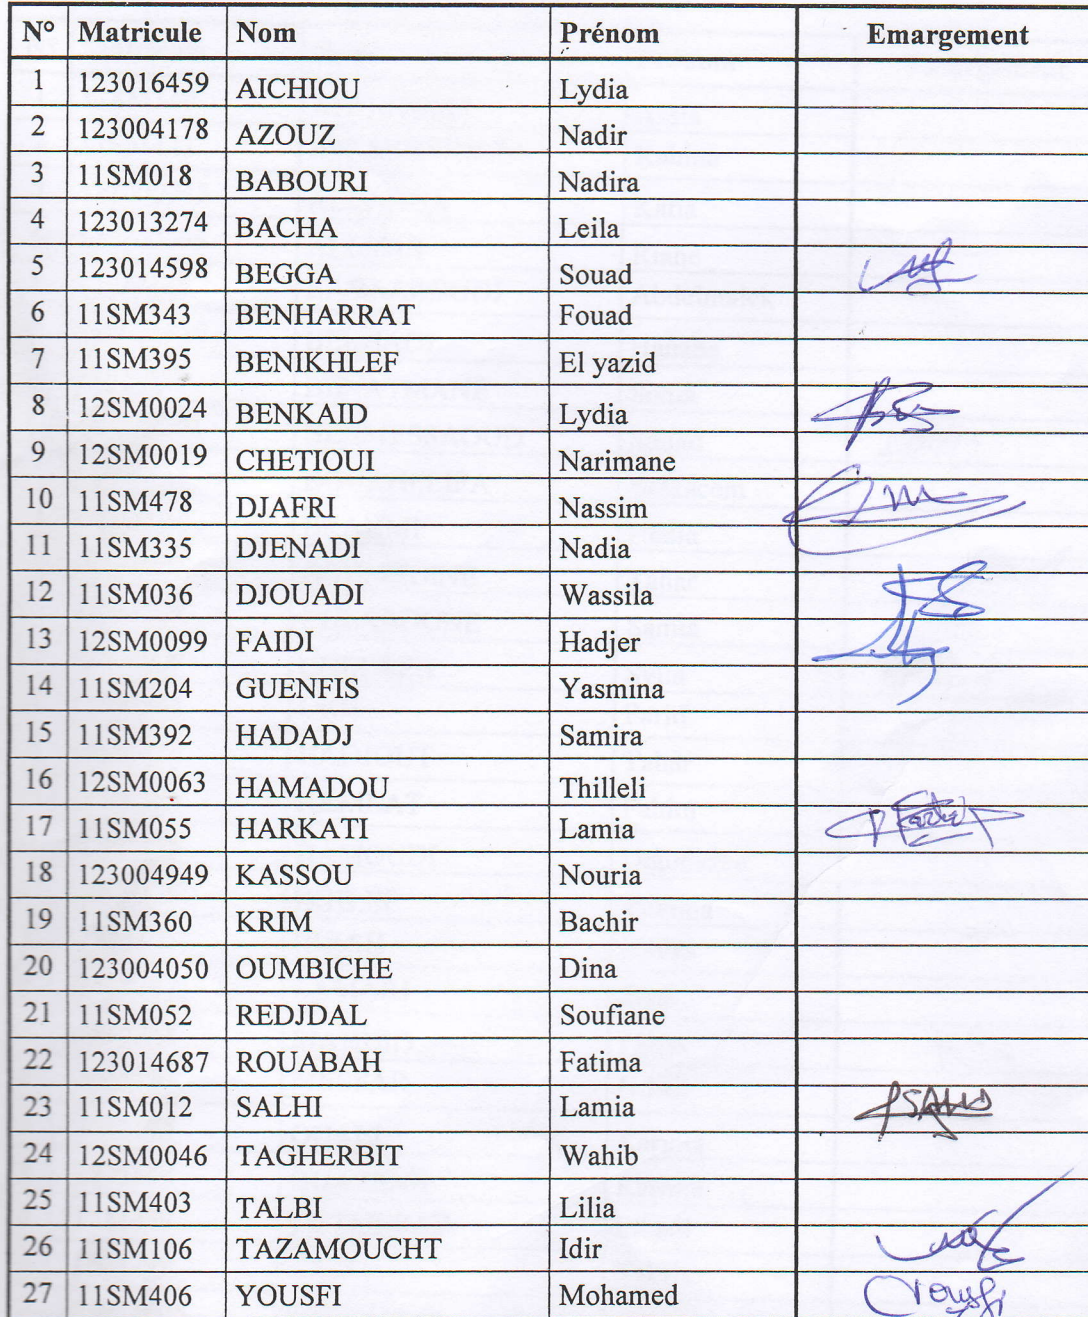 N° Matricule Nom Prénom Emargement
1 123016459 AICHIOU Lydia
2 123004178 AZOUZ Nadir
3 11SM018 BABOURI Nadira
4 123013274 BACHA Leila
5 123014598 BEGGA Souad
6 11SM343 BENHARRAT Fouad
7 11SM395 BENIKHLEF El yazid
8 12SM0024 BENKAID Lydia
9 12SM0019 CHETIOUI Narimane
10 11SM478 DJAFRI Nassim
11 11SM335 DJENADI Nadia
12 11SM036 DJOUADI Wassila
13 12SM0099 FAIDI Hadjer
14 11SM204 GUENFIS Yasmina
15 11SM392 HADADJ Samira
16 12SM0063 HAMADOU Thilleli
17 11SM055 HARKATI Lamia
18 123004949 KASSOU Nouria
19 11SM360 KRIM Bachir
20 123004050 OUMBICHE Dina
21 11SM052 REDJDAL Soufiane
22 123014687 ROUABAH Fatima
23 11SM012 SALHI Lamia
24 12SM0046 TAGHERBIT Wahib
25 11SM403 TALBI Lilia
26 11SM106 TAZAMOUCHT Idir
27 11SM406 YOUSFI Mohamed Yousfi